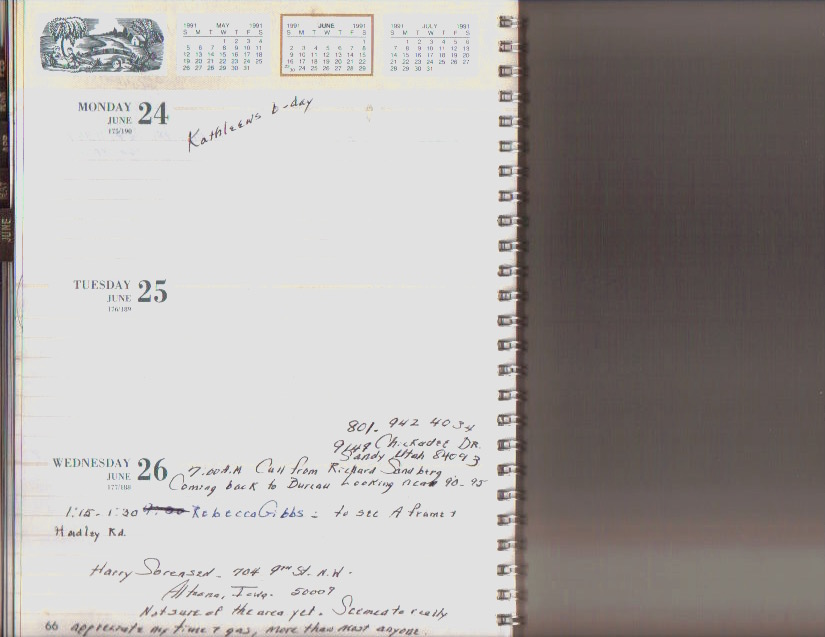 1991 MAY 1991
S M T W T F S
1 2 3 4
5 6 7 8 9 10 11
12 13 14 15 16 17 18
19 20 21 22 23 24 25
26 27 28 29 30 31
1991 JUNE 1991
S M T W T F S
1
2 3 4 5 6 7 8
9 10 11 12 13 14 15
16 17 18 19 20 21 22
23/30 24 25 26 27 28 29
1991 JULY 1991
S M T W T F S
1 2 3 4 5 6
7 8 9 10 11 12 13
14 15 16 17 18 19 20
21 22 23 24 25 26 27
28 29 30 31
JUNE
MONDAY 24
JUNE
175/190
Kathleens b-day
TUESDAY 25
JUNE
176/189
801-942 4034
9149 Chickadee DR.
Sandy Utah 84093
WEDNESDAY 26
JUNE
177/188
7:00 A.M Call from Richard Sandberg
Coming back to Bureau Looking near 90-95
1:15-1:30 Rebecca Gibbs - to see A frame &
Hadley Rd.
Harry Sorensen - 704 9th St. N.W.
Altoona, Iowa. 50009
Not sure of the area yet. Seemed to really
66 appreciate my time & gas, more than most anyone.